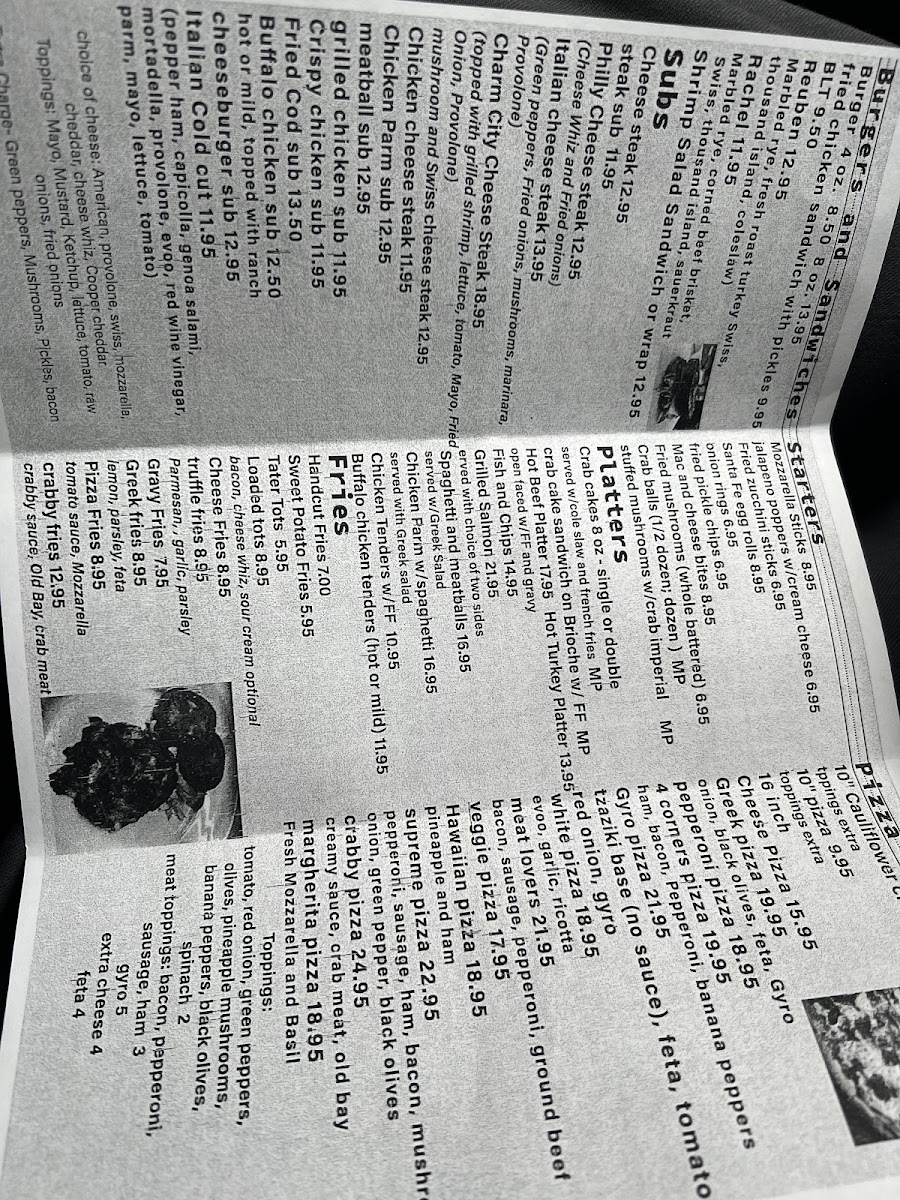 Burgers and Sandwiches
Burger 4 oz. 8.50 8 oz. 13.95
fried chicken sandwich with pickles 9.95
BLT 9.50
Reuben 12.95
Marbled rye, fresh roast turkey Swiss,
thousand island, coleslaw)
Rachel 11.95
Marbled rye, corned beef brisket,
Swiss, thousand island, sauerkraut
Shrimp Salad Sandwich or wrap 12.95
Subs
Cheese steak 12.95
steak sub 11.95
Philly Cheese steak 12.95
(Cheese Whiz and Fried onions)
Italian cheese steak 13.95
(Green peppers, Fried onions, mushrooms, marinara,
Provolone)
Charm City Cheese Steak 18.95
(topped with grilled shrimp, lettuce, tomato, Mayo, Fried
Onion, Provolone)
mushroom and Swiss cheese steak 12.95
Chicken cheese steak 11.95
Chicken Parm sub 12.95
meatball sub 12.95
grilled chicken sub 11.95
Crispy chicken sub 11.95
Fried Cod sub 13.50
Buffalo chicken sub 12.50
hot or mild, topped with ranch
cheeseburger sub 12.95
Italian Cold cut 11.95
(pepper ham, capicolla, genoa salami,
mortadella, provolone, evoo, red wine vinegar,
parm, mayo, lettuce, tomato)
choice of cheese: American, provolone, swiss, mozzarella,
cheddar, cheese whiz, Cooper cheddar,
Toppings: Mayo, Mustard, Ketchup, lettuce, tomato, raw
onions, fried onions
Charge- Green peppers, Mushrooms, Pickles, bacon
Starters
Mozzarella Sticks 8.95
jalapeno poppers w/cream cheese 6.95
Fried zucchini sticks 6.95
Santa Fe egg rolls 8.95
onion rings 6.95
fried pickle chips 6.95
Mac and cheese bites 8.95
Fried mushrooms (whole battered) 6.95
Crab balls (1/2 dozen; dozen ) MP
stuffed mushrooms w/crab imperial MP
Platters
Crab cakes 8 oz - single or double
served w/cole slaw and french fries MP
crab cake sandwich on Brioche w/ FF MP
Hot Beef Platter 17.95 Hot Turkey Platter 13.95
open faced w/FF and gravy
Fish and Chips 14.95
Grilled Salmon 21.95
erved with choice of two sides
Spaghetti and meatballs 16.95
served w/Greek Salad
Chicken Parm w/spaghetti 16.95
served with Greek salad
Chicken Tenders w/FF 10.95
Buffalo chicken tenders (hot or mild) 11.95
Fries
Handcut Fries 7.00
Sweet Potato Fries 5.95
Tater Tots 5.95
Loaded tots 8.95
bacon, cheese whiz, sour cream optional
Cheese Fries 8.95
truffle fries 8.95
Parmesan, , garlic, parsley
Gravy Fries 7.95
Greek fries 8.95
lemon, parsley, feta
Pizza Fries 8.95
tomato sauce, Mozzarella
crabby fries 12.95
crabby sauce, Old Bay, crab meat
Pizza
10" Cauliflower
tppings extra
10" pizza 9.95
toppings extra
16 inch Pizza 15.95
Cheese pizza 19.95
Greek pizza 19.95
onion, black olives, feta, Gyro
pepperoni pizza 18.95
4 corners pizza 19.95
ham, bacon, Pepperoni, banana peppers
Gyro pizza 21.95
tzaziki base (no sauce), feta, tomato
red onion, gyro
white pizza 18.95
evoo, garlic, ricotta
meat lovers 21.95
bacon, sausage, pepperoni, ground beef
veggie pizza 17.95
Hawaiian pizza 18.95
pineapple and ham
supreme pizza 22.95
pepperoni, sausage, ham, bacon, mushr
onion, green pepper, black olives
crabby pizza 24.95
creamy sauce, crab meat, old bay
margherita pizza 18.95
Fresh Mozzarella and Basil
Toppings:
tomato, red onion, green peppers,
olives, pineapple mushrooms,
banana peppers, black olives,
spinach 2
meat toppings: bacon, pepperoni,
sausage, ham 3
gyro 5
extra cheese 4
feta 4